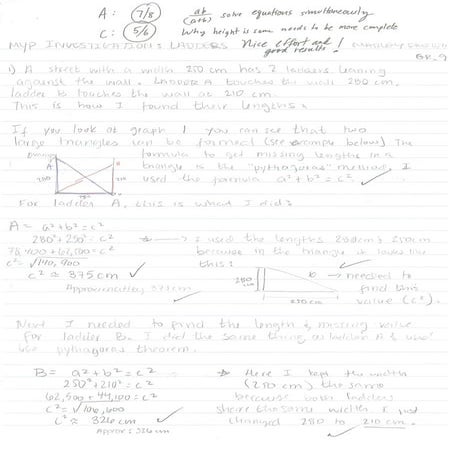 A: 7/8 ab/(a+b) solve equations simultaneously
C: 5/6 Why height is same needs to be more complete
MYP INVESTIGATIONS: LADDERS Nice effort and good results!
GR. 9
1) A street with a width 250 cm has 2 ladders leaning
against the wall. Ladder A touches the wall 280 cm.
ladder B touches the wall at 210 cm.
This is how I found their lengths:
If you look at graph 1 you can see that two
large triangles can be formed (see example below). The
formula to get missing lengths in a
triangle is the "pythagoras" method. I
used the formula a² + b² = c² ✓
For ladder A, this is what I did:
A = a² + b² = c²
280² + 250² = c² → I used the lengths 280cm & 250cm
78,400 + 62,500 = c² because in the triangle it looks like
c² = √140,900 this:
c² ≈ 375 cm ✓ 280 cm b → needed to
Approximately 375 cm find this
250 cm value (c²).
Next I needed to find the length & missing value
for ladder B. I did the same thing as ladder A & used
the pythagoras theorem.
B = a² + b² = c² → Here I kept the width
250² + 210² = c² (250 cm) the same
62,500 + 44,100 = c² because both ladders
c² = √106,600 share the same width. I just
c² ≈ 326 cm ✓ changed 280 to 210 cm. ✓
Approx: 326 cm